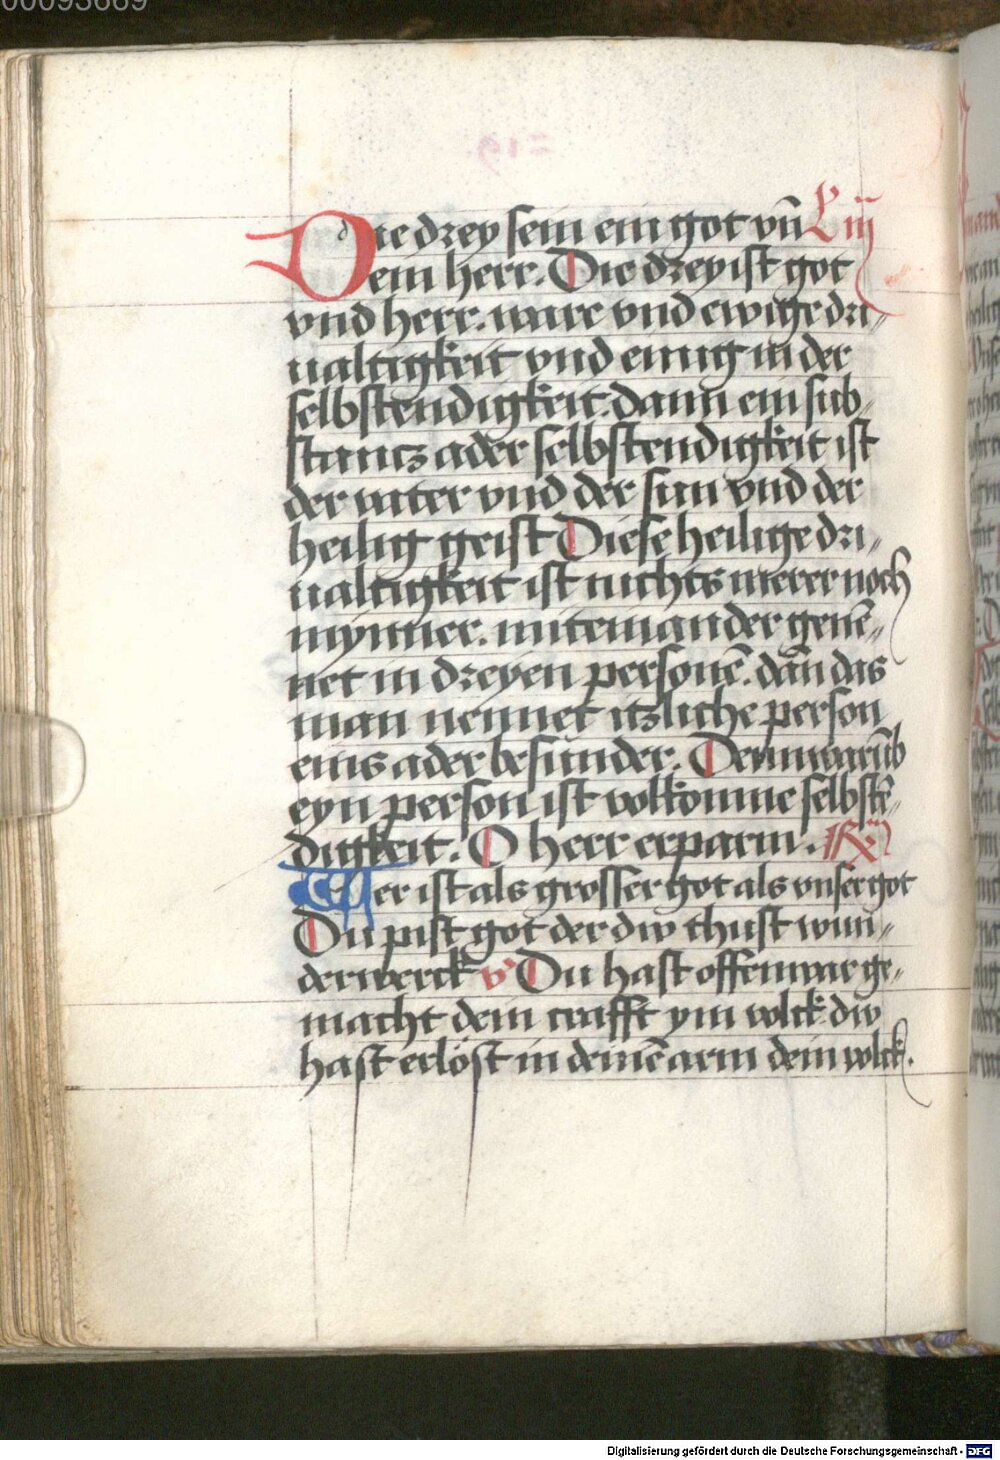 00093669
Die drey sein ein got vn̄ L iij
ein herr. Die drey ist got
vnd herr. ware vnd ewige dri„
ualtigkeit vnd einig in der
selbstendigkeit. dann ein sub„
stancz ader selbstendigkeit ist
der vater vnd der sun vnd der
heilig geist Diese heilige dri„
ualtigkeit ist nichts merer noch
mynner. miteinander genē„
net in dreyen personē. dan̄ das
man nennet itzliche person
eins ader besunder. Denn warūb
eyn person ist volkomne selbstē„
digkeit. O herr erparm. R
Wer ist als grosser got als vnser got
Du pist got der dw thust wun„
derwerck v Du hast offenwar ge„
macht dein crafft ym volck dw
hast erlöst in deinē arm dein volck.
Digitalisierung gefördert durch die Deutsche Forschungsgemeinschaft - DFG